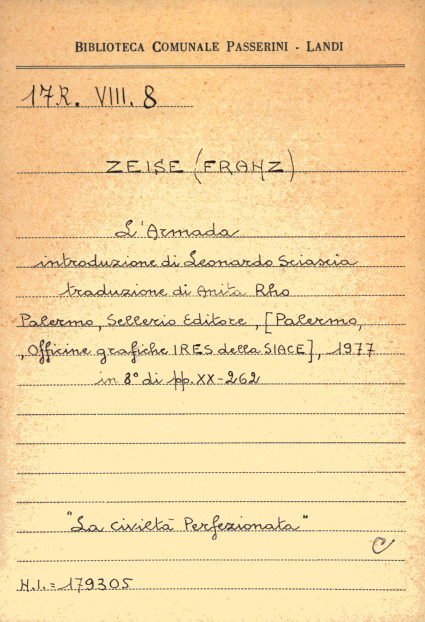 BIBLIOTECA COMUNALE PASSERINI - LANDI
17R. VIII. 8
ZEISE (FRANZ)
L'Armada
introduzione di Leonardo Sciascia
traduzione di Anita Rho
Palermo, Sellerio Editore, [Palermo,
, Officine grafiche IRES della SIACE], 1977
in 8° di pp. XX-262
"La civiltà Perfezionata"
C
N.I. = 179305